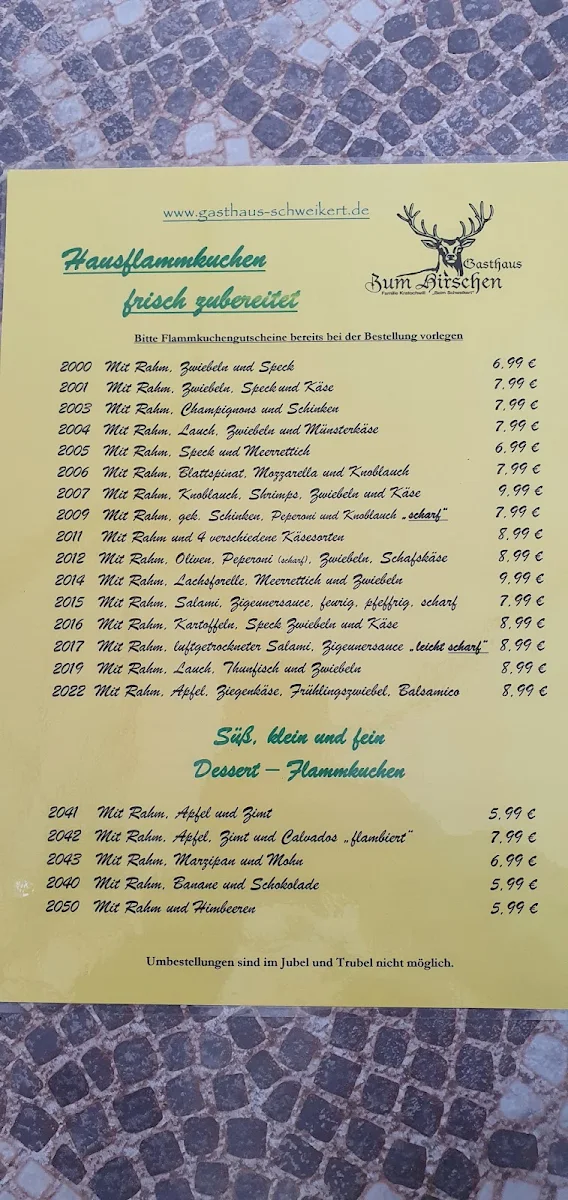 www.gasthaus-schweikert.de
Hausflammkuchen
frisch zubereitet
Gasthaus
Zum Hirschen
Bitte Flammkuchengutscheine bereits bei der Bestellung vorlegen
2000 Mit Rahm, Zwiebeln und Speck 6,99 €
2001 Mit Rahm, Zwiebeln, Speck und Käse 7,99 €
2003 Mit Rahm, Champignons und Schinken 7,99 €
2004 Mit Rahm, Lauch, Zwiebeln und Münsterkäse 7,99 €
2005 Mit Rahm, Speck und Meerrettich 6,99 €
2006 Mit Rahm, Blattspinat, Mozzarella und Knoblauch 7,99 €
2007 Mit Rahm, Knoblauch, Shrimps, Zwiebeln und Käse 9,99 €
2009 Mit Rahm, gek. Schinken, Peperoni und Knoblauch „scharf" 7,99 €
2011 Mit Rahm und 4 verschiedene Käsesorten 8,99 €
2012 Mit Rahm, Oliven, Peperoni (scharf), Zwiebeln, Schafskäse 8,99 €
2014 Mit Rahm, Lachsforelle, Meerrettich und Zwiebeln 9,99 €
2015 Mit Rahm, Salami, Zigeunersauce, feurig, pfeffrig, scharf 7,99 €
2016 Mit Rahm, Kartoffeln, Speck Zwiebeln und Käse 8,99 €
2017 Mit Rahm, luftgetrockneter Salami, Zigeunersauce „leicht scharf" 8,99 €
2019 Mit Rahm, Lauch, Thunfisch und Zwiebeln 8,99 €
2022 Mit Rahm, Apfel, Ziegenkäse, Frühlingszwiebel, Balsamico 8,99 €
Süß, klein und fein
Dessert – Flammkuchen
2041 Mit Rahm, Apfel und Zimt 5,99 €
2042 Mit Rahm, Apfel, Zimt und Calvados „flambiert" 7,99 €
2043 Mit Rahm, Marzipan und Mohn 6,99 €
2040 Mit Rahm, Banane und Schokolade 5,99 €
2050 Mit Rahm und Himbeeren 5,99 €
Umbestellungen sind im Jubel und Trubel nicht möglich.